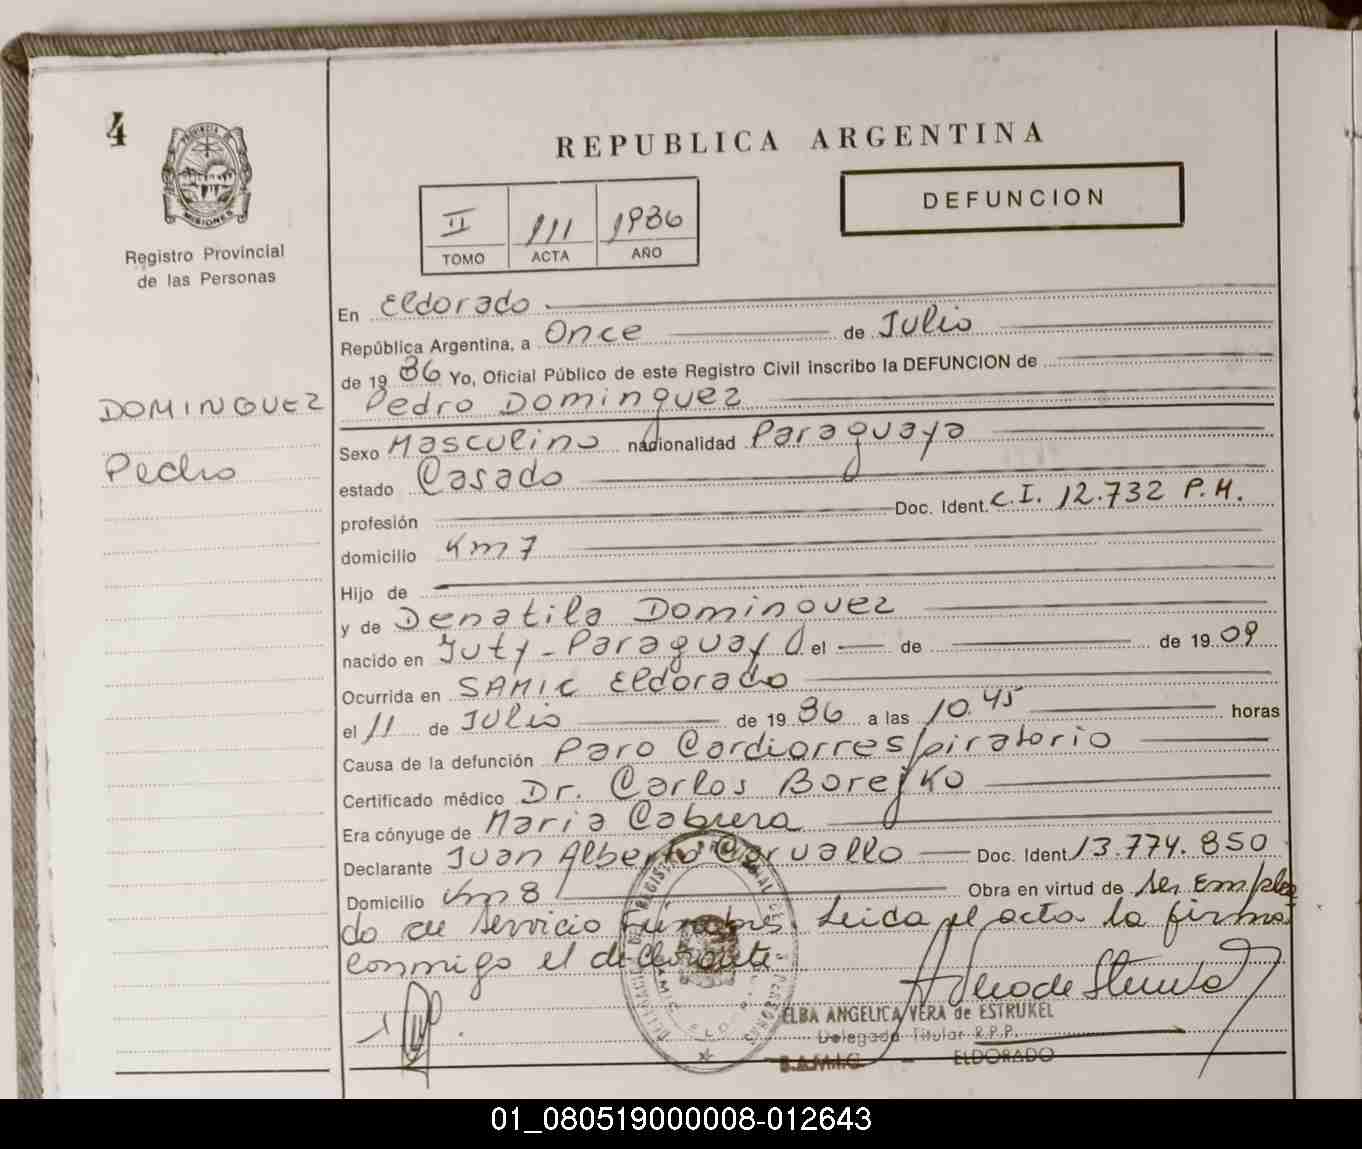 4
PROVINCIA DE
MISIONES
Registro Provincial
de las Personas
DOMINGUEZ
Pedro
REPUBLICA ARGENTINA
II 111 1986
TOMO ACTA AÑO
DEFUNCION
En Eldorado
República Argentina, a Once de Julio
de 19 86 Yo, Oficial Público de este Registro Civil inscribo la DEFUNCION de
Pedro Dominguez
Sexo Masculino nacionalidad Paraguaya
estado Casado
profesión Doc. Ident. C.I. 12.732 P.M.
domicilio Km 7
Hijo de
y de Denatila Dominguez
nacido en Yuty - Paraguay el de de 19 09
Ocurrida en SAMIC Eldorado
el 11 de Julio de 19 86 a las 10.45 horas
Causa de la defunción Paro Cardiorrespiratorio
Certificado médico Dr. Carlos Borejko
Era cónyuge de Maria Cabrera
Declarante Juan Alberto Carvallo Doc. Ident 13.774.850
Domicilio Km 8 Obra en virtud de ser Emplea
do de servicio Funebres. Leida el acta la firma
conmigo el declarante
ELBA ANGELICA VERA de ESTRUKEL
Delegada Titular R.P.P.
S.A.M.I.C. - ELDORADO
01_080519000008-012643